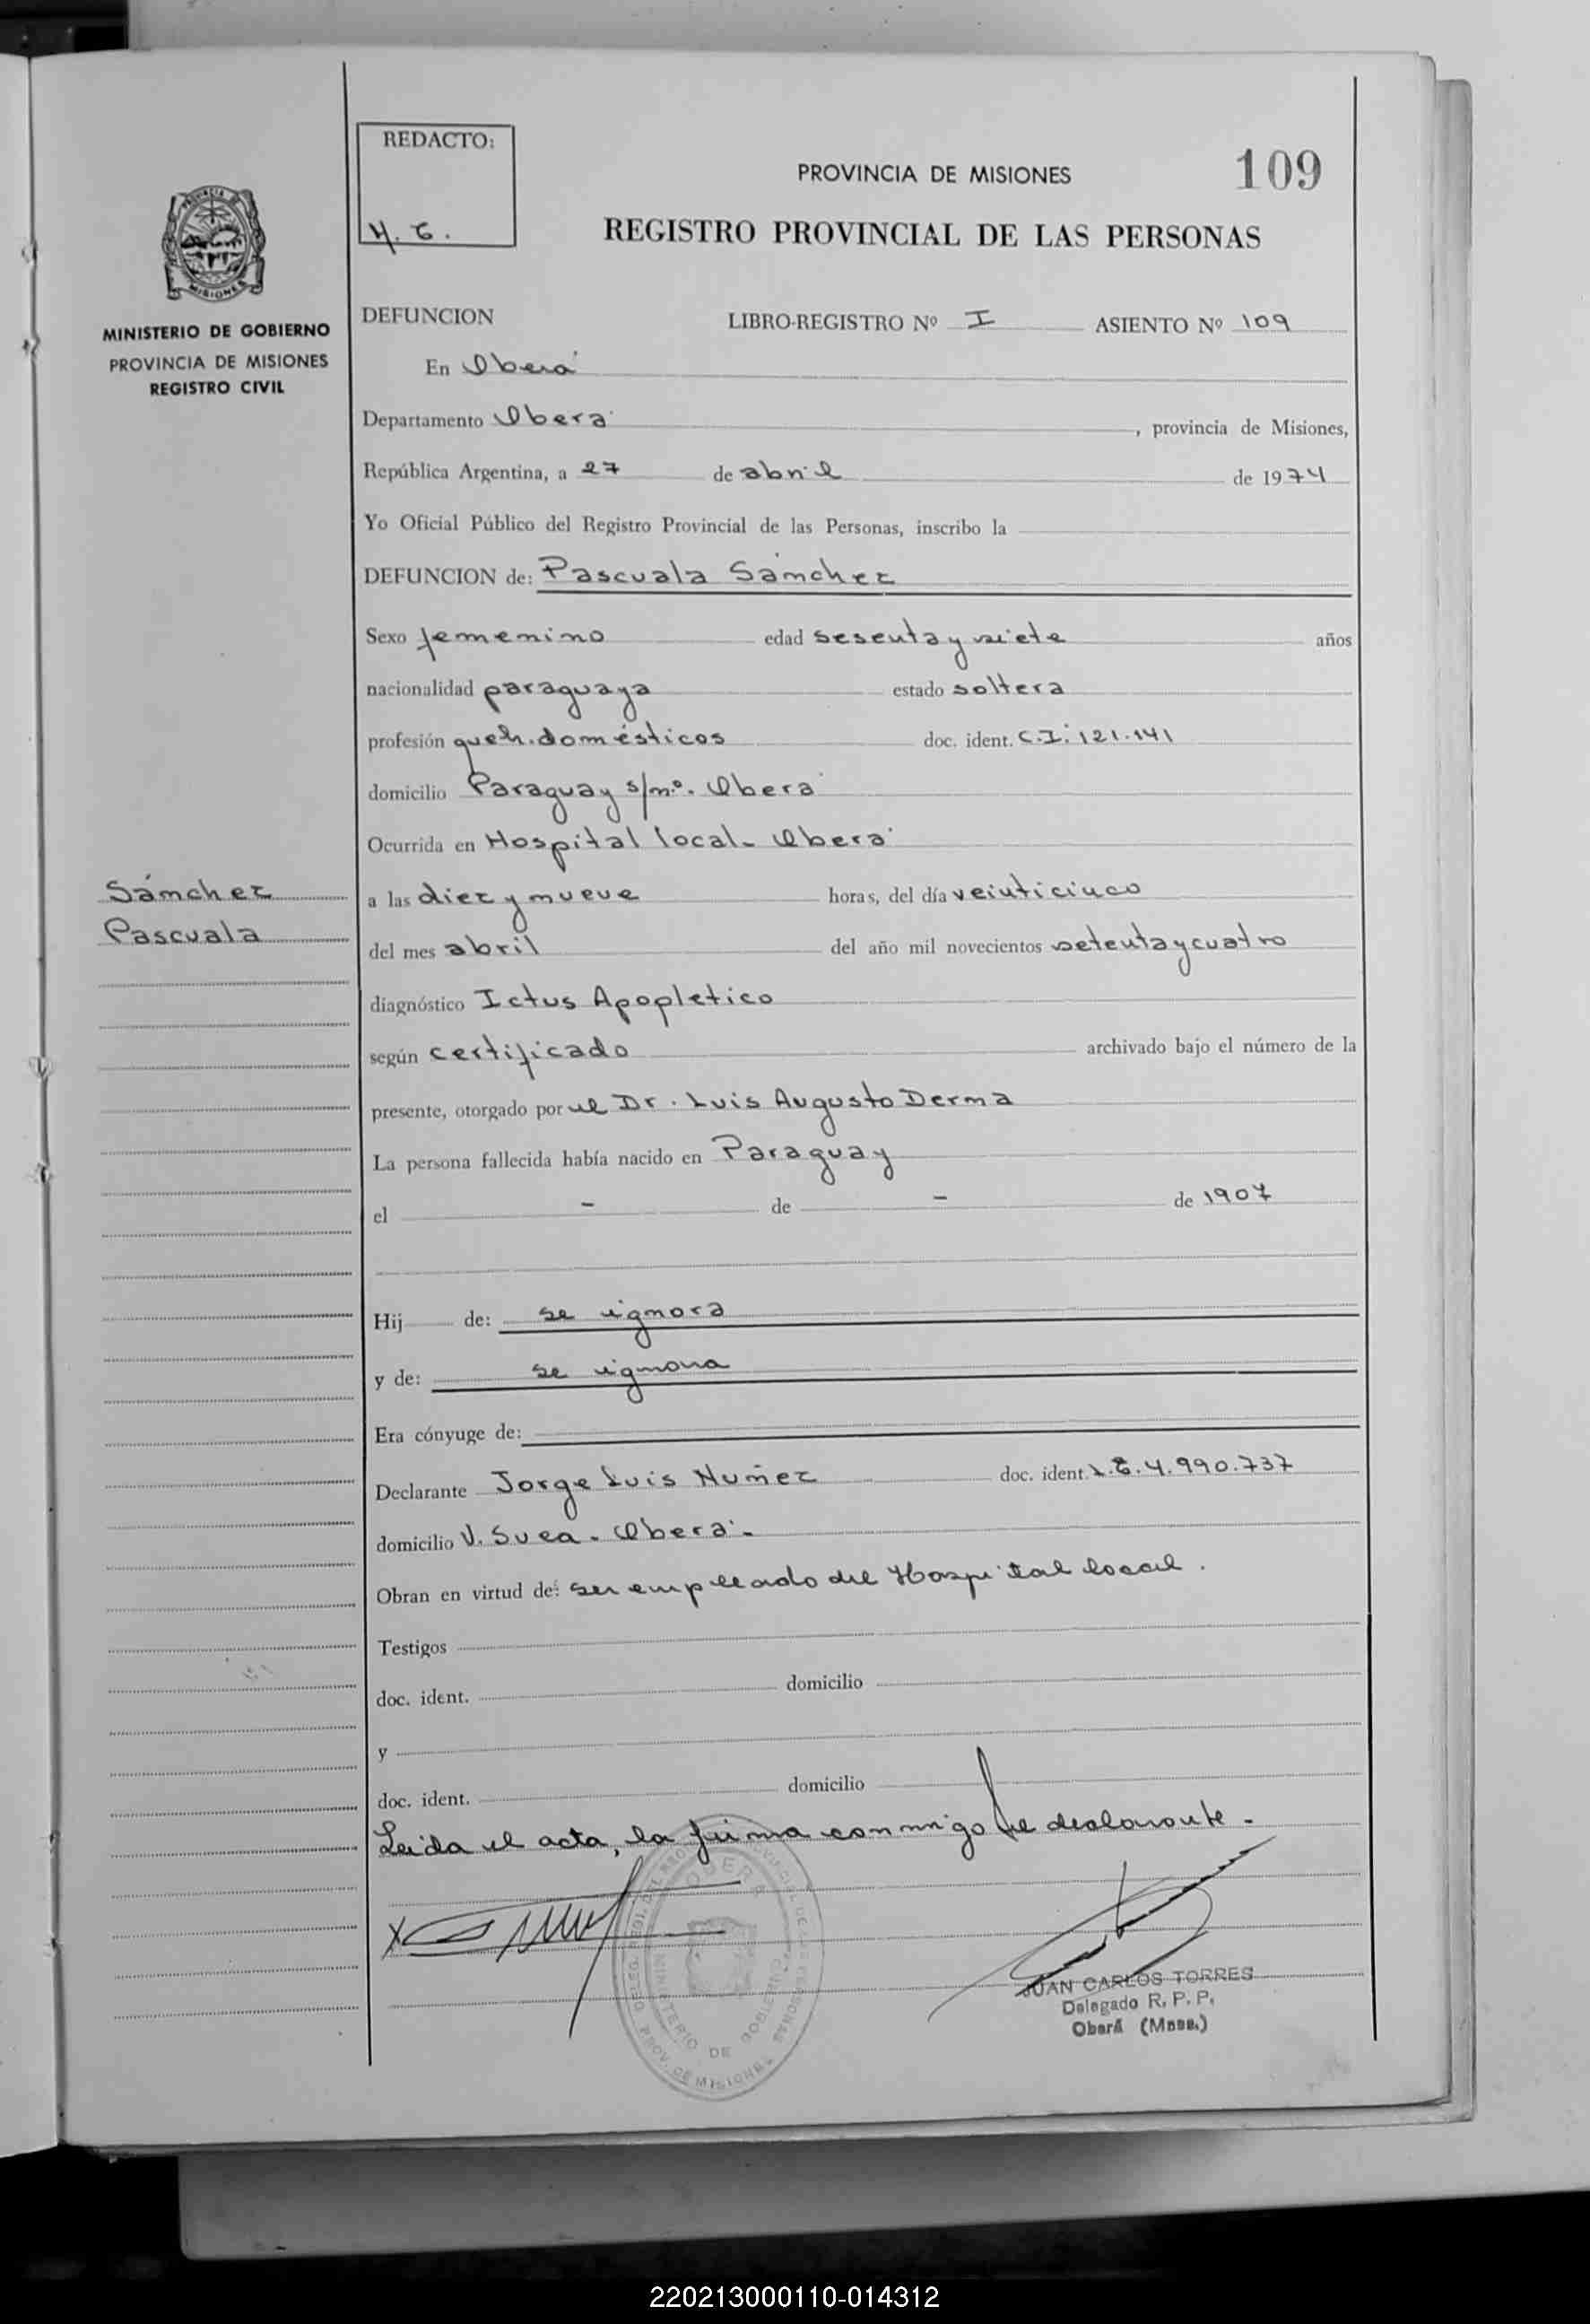 REDACTO:
PROVINCIA DE MISIONES
109
REGISTRO PROVINCIAL DE LAS PERSONAS
MISIONES
MINISTERIO DE GOBIERNO
PROVINCIA DE MISIONES
REGISTRO CIVIL
DEFUNCION LIBRO-REGISTRO Nº I ASIENTO Nº 109
En Oberá
Departamento Oberá, provincia de Misiones,
República Argentina, a 27 de abril de 1974
Yo Oficial Público del Registro Provincial de las Personas, inscribo la
DEFUNCION de: Pascuala Sánchez
Sexo femenino edad sesenta y siete años
nacionalidad paraguaya estado soltera
profesión queh. domésticos doc. ident. C.I. 121.141
domicilio Paraguay s/nº. Oberá
Ocurrida en Hospital local- Oberá
Sánchez
Pascuala
a las diez y nueve horas, del día veinticinco
del mes abril del año mil novecientos setenta y cuatro
diagnóstico Ictus Apopletico
según certificado archivado bajo el número de la
presente, otorgado por el Dr. Luis Augusto Derma
La persona fallecida había nacido en Paraguay
el - de - de 1907
Hij de: se ignora
y de: se ignora
Era cónyuge de:
Declarante Jorge Luis Nuñez doc. ident. L.E. 4.990.737
domicilio V. Svea - Oberá.-
Obran en virtud de: ser empleado del Hospital local.
Testigos
doc. ident. domicilio
y
doc. ident. domicilio
Leida el acta, la firma conmigo el declarante.-
OBERA
MINISTERIO DE GOBIERNO
PROV. DE MISIONES
JUAN CARLOS TORRES
Delegado R. P. P.
Oberá (Mnes.)
220213000110-014312